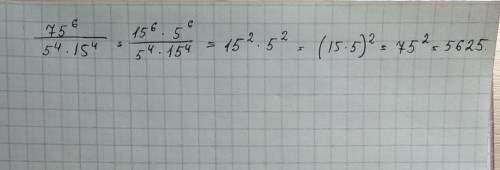 75⁶/(5⁴ · 15⁴) = (15⁶ · 5⁶)/(5⁴ · 15⁴) = 15² · 5² = (15 · 5)² = 75² = 5625